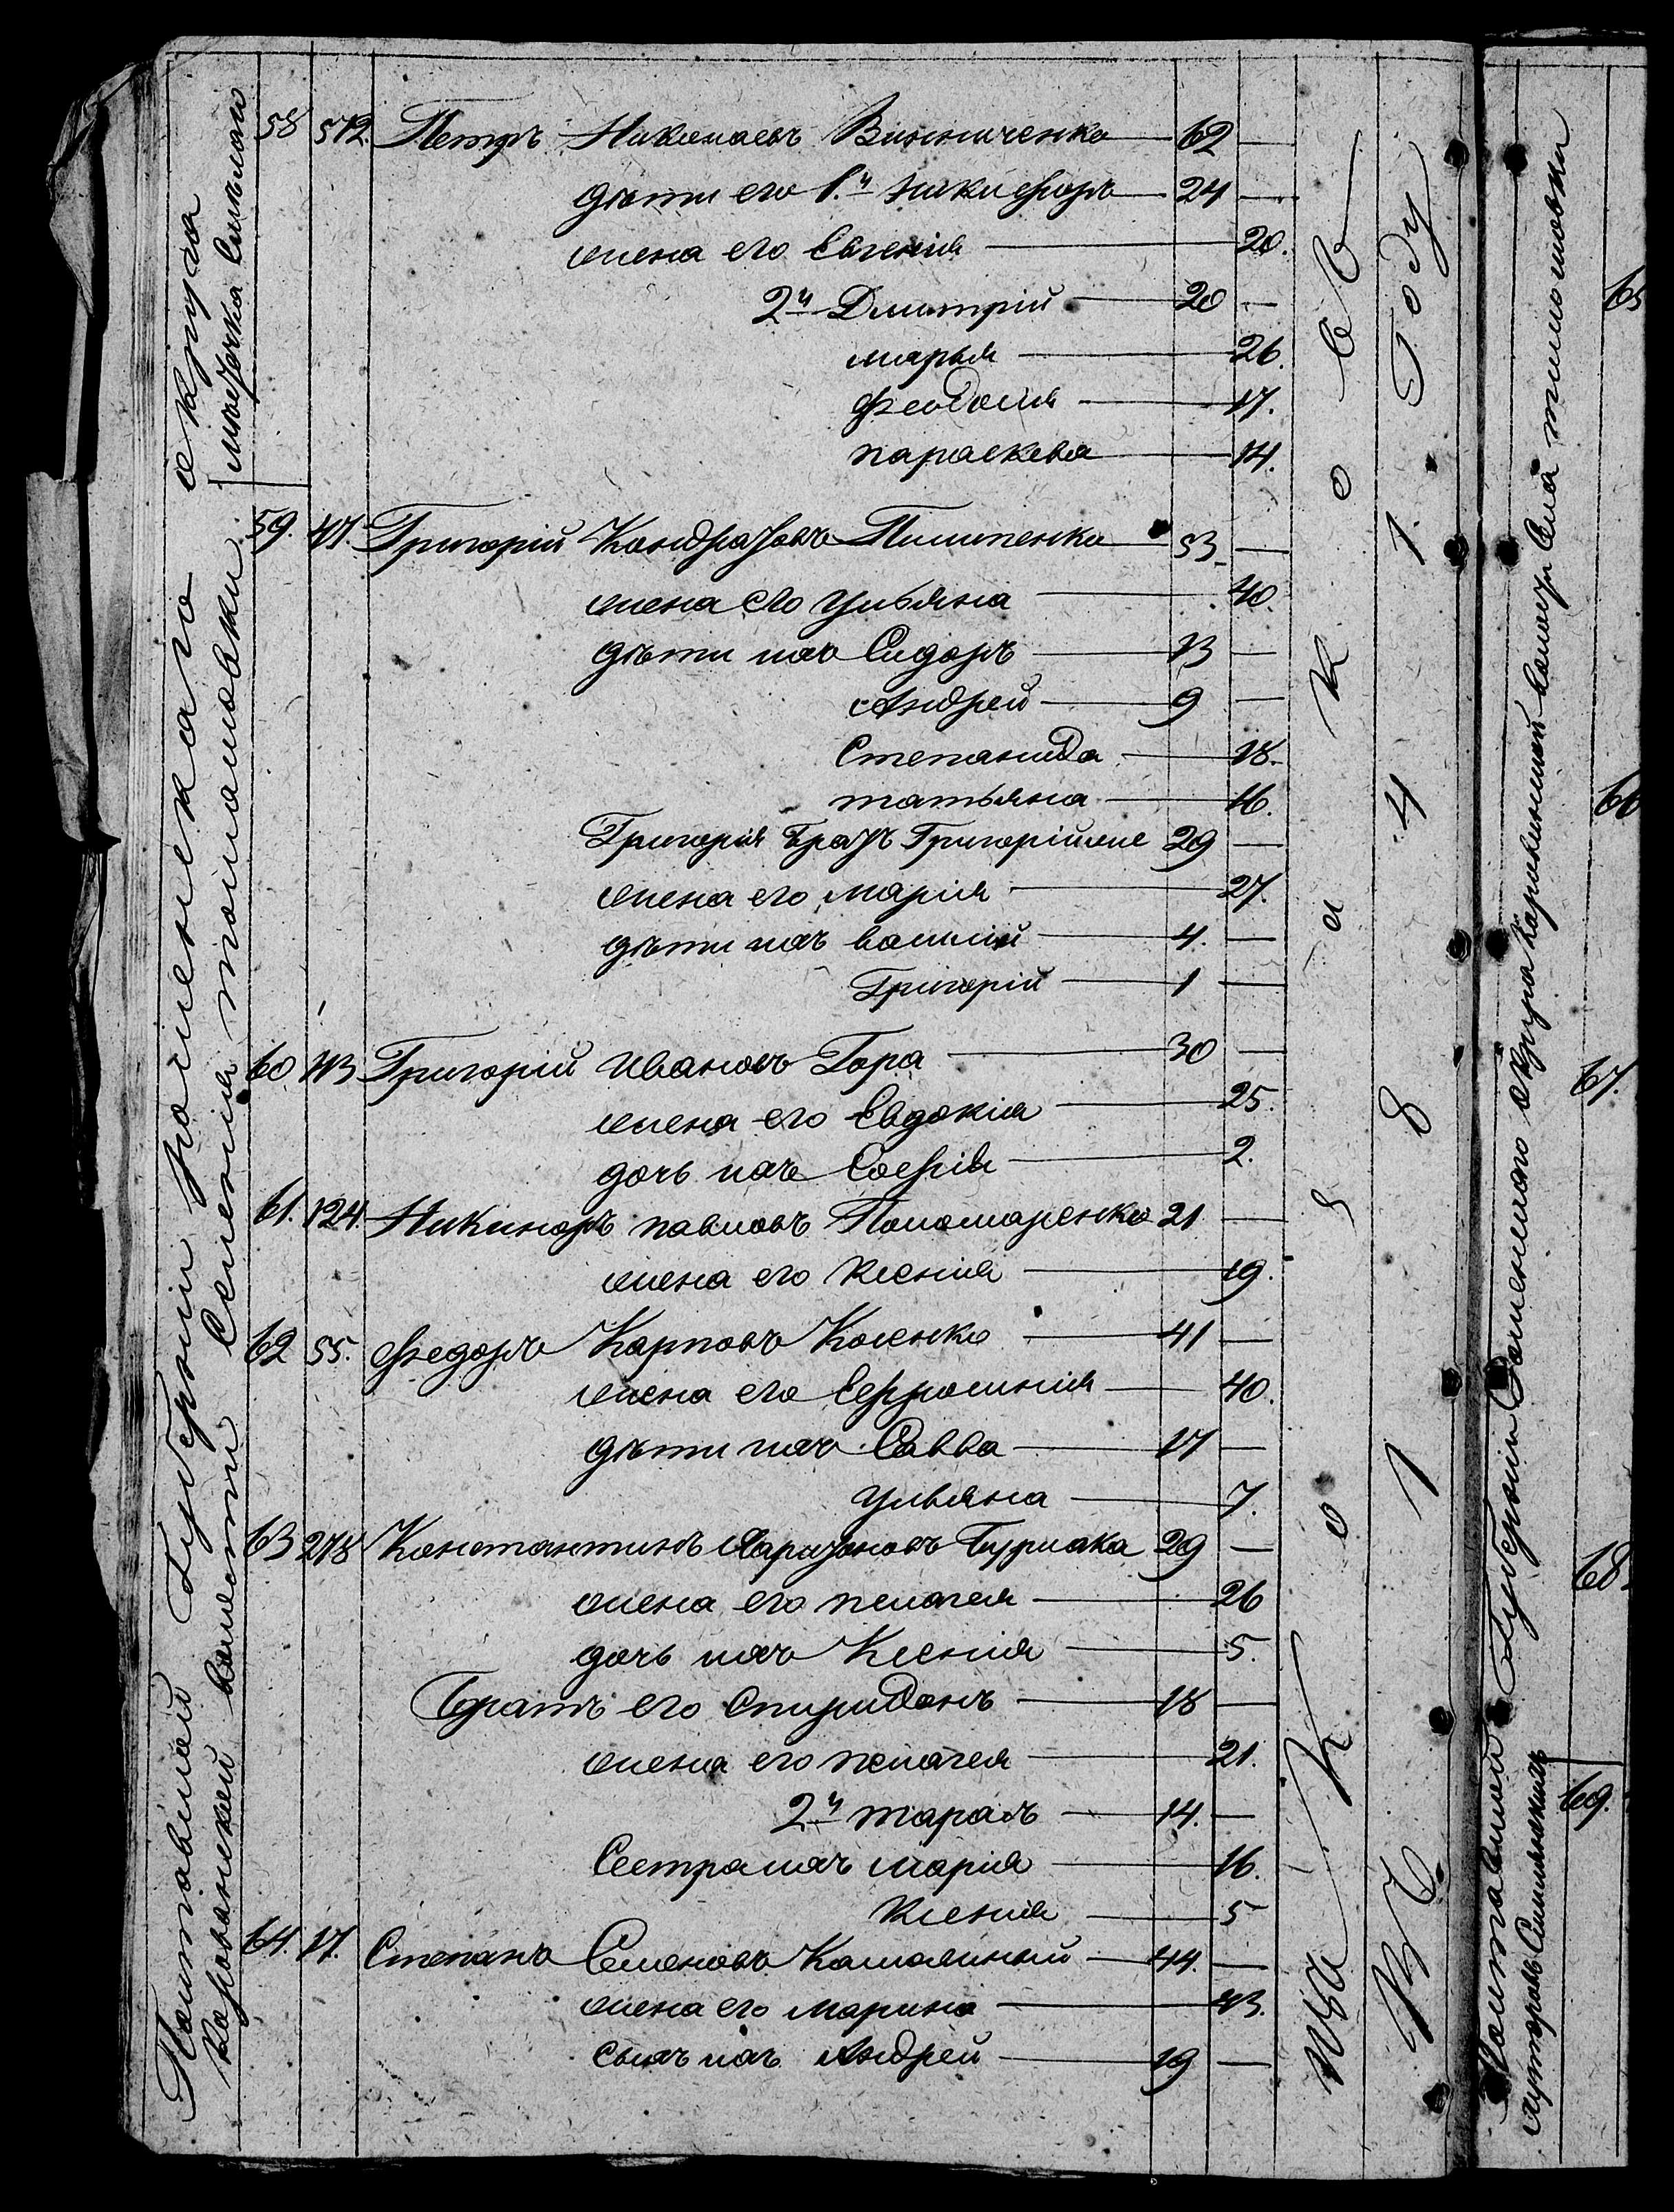 58 572 Петръ Николаевъ Винниченко 62 —
дѣти его 1.й Никифоръ 24 —
жена его Евгенія 20.
2й Дмитрій 20 —
марья 26.
Феодосия 17.
параскева 14.
59. 47. Григорій Кондратовъ Пилипенко 53 —
жена его Ульяна 40.
дѣти ихъ Сидоръ 13 —
Андрей 9 —
Степанида 18.
татьяна 16.
Григорія Братъ Григорій 29 —
жена его марія 27.
дѣти ихъ василій 4. —
Григорій 1 —
60 113 Григорій Ивановъ Гора 30 —
жена его Евдокія 25.
дочь ихъ Софія 2.
61. 124. Никиноръ павловъ Пономаренко 21 —
жена его Ксенія 19.
62 55. Федоръ Карповъ Косенко 41 —
жена его Ефросинія 40.
дѣти ихъ Савва 17 —
Ульяна 7.
63 278 Константинъ 29 —
жена его пелагея 26
дочь ихъ Ксенія 5.
Братъ его Спиридонъ 18 —
жена его пелагея 21.
2й тарасъ 14. —
Сестра ихъ марія 16.
Ксенія 5
64. 17. Степанъ Семеновъ 44. —
жена его марина 43.
сынъ ихъ Андрей 19 —
Полтавской Губерніи округа
волости Селенія
мѣстечка
Въ 1 8 4 1 Году
Полтавской Губерніи округа волости села
65
66
67.
68.
69.